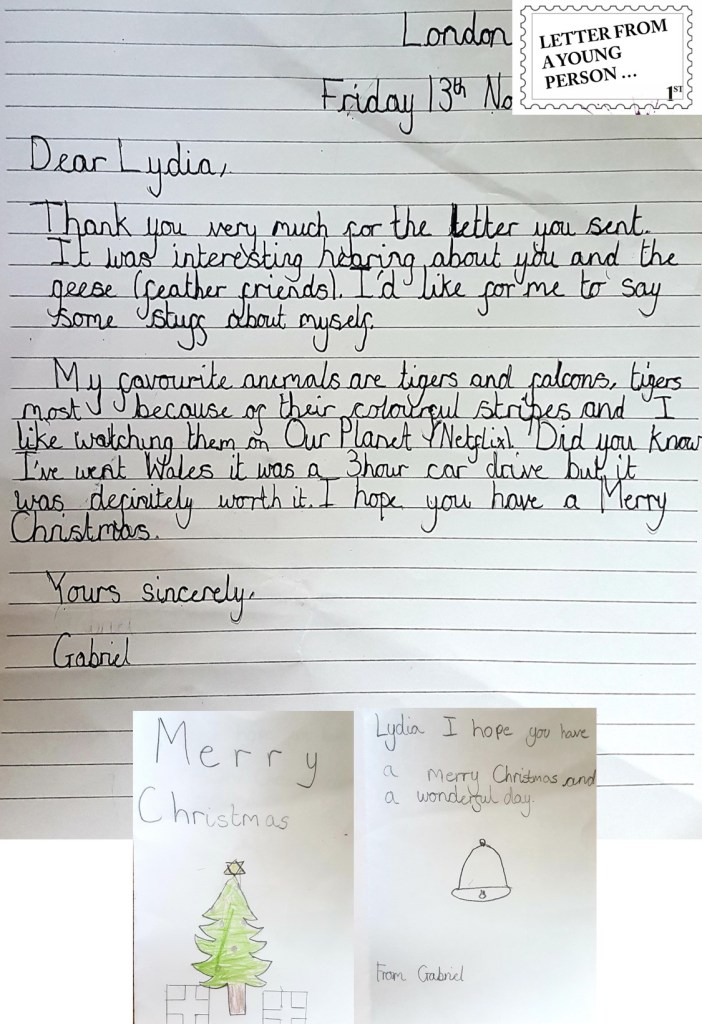 London
LETTER FROM
A YOUNG
PERSON ...
1ST
Friday 13th No
Dear Lydia,
Thank you very much for the letter you sent.
It was interesting hearing about you and the
geese (feather friends). I'd like for me to say
some stuff about myself.
My favourite anemals are tigers and falcons, tigers
most because of their colourful stripes and I
like watching them on Our Planet (Netflix). Did you know
I've went Wales it was a 3hour car drive but it
was definitely worth it. I hope you have a Merry
Christmas.
Yours sincerely,
Gabriel
Merry
Christmas
Lydia I hope you have
a merry Christmas and
a wonderful day.
From Gabriel